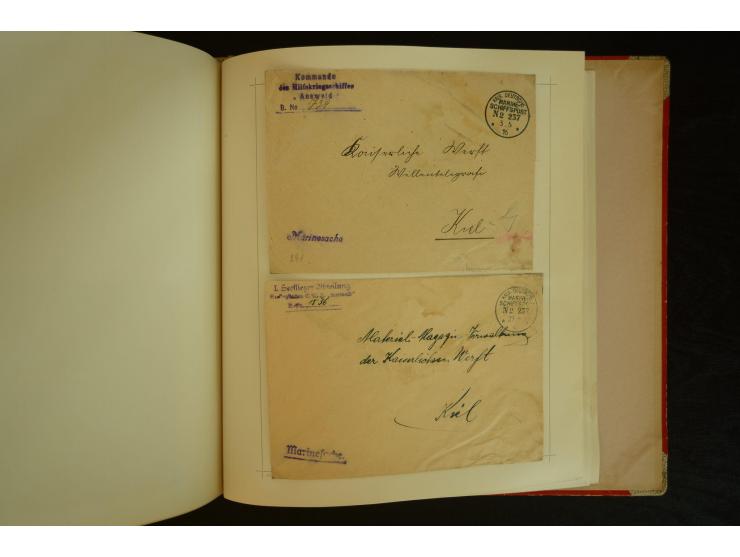 Kommando
des Hilfskriegsschiffes
„Answald"
B. No 738
KAIS. DEUTSCHE
MARINE-
SCHIFFSPOST
No 237
3 5
16
Kaiserliche Werft
Kiel
Marinesache
I. Seeflieger Abteilung
B. No. 1536
KAIS. DEUTSCHE
MARINE-
SCHIFFSPOST
No 237
Material-Magazin Verwaltung
der Kaiserlichen Werft
Kiel
Marinesache.